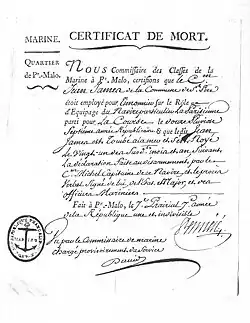 MARINE. CERTIFICAT DE MORT.
QUARTIER
de Pt.-Malo.
NOUS Commissaire des Classes de la
Marine à Pt. Malo, certifions que le C.en
Jean Jamea de la Commune de
étoit employé pour sur le Rôle
d'Equipage du Navire particulier
parti pour La Course le douze
Septième année Républicaine & que ledit Jean
Jamea est Tombé à la mer et s'est Noyé
Le Vingt-un du suivant
la déclaration faite au désarmement par le
C.en Michel Capitaine de ce Navire, et le procès
Verbal Signé de lui, de l'Etat Major, et des
officiers Mariniers
Fait à Pt.-Malo, le 7 Prairial 7e année
de la République une et indivisible
Vu par le Commissaire de marine
chargé provisoirement du service